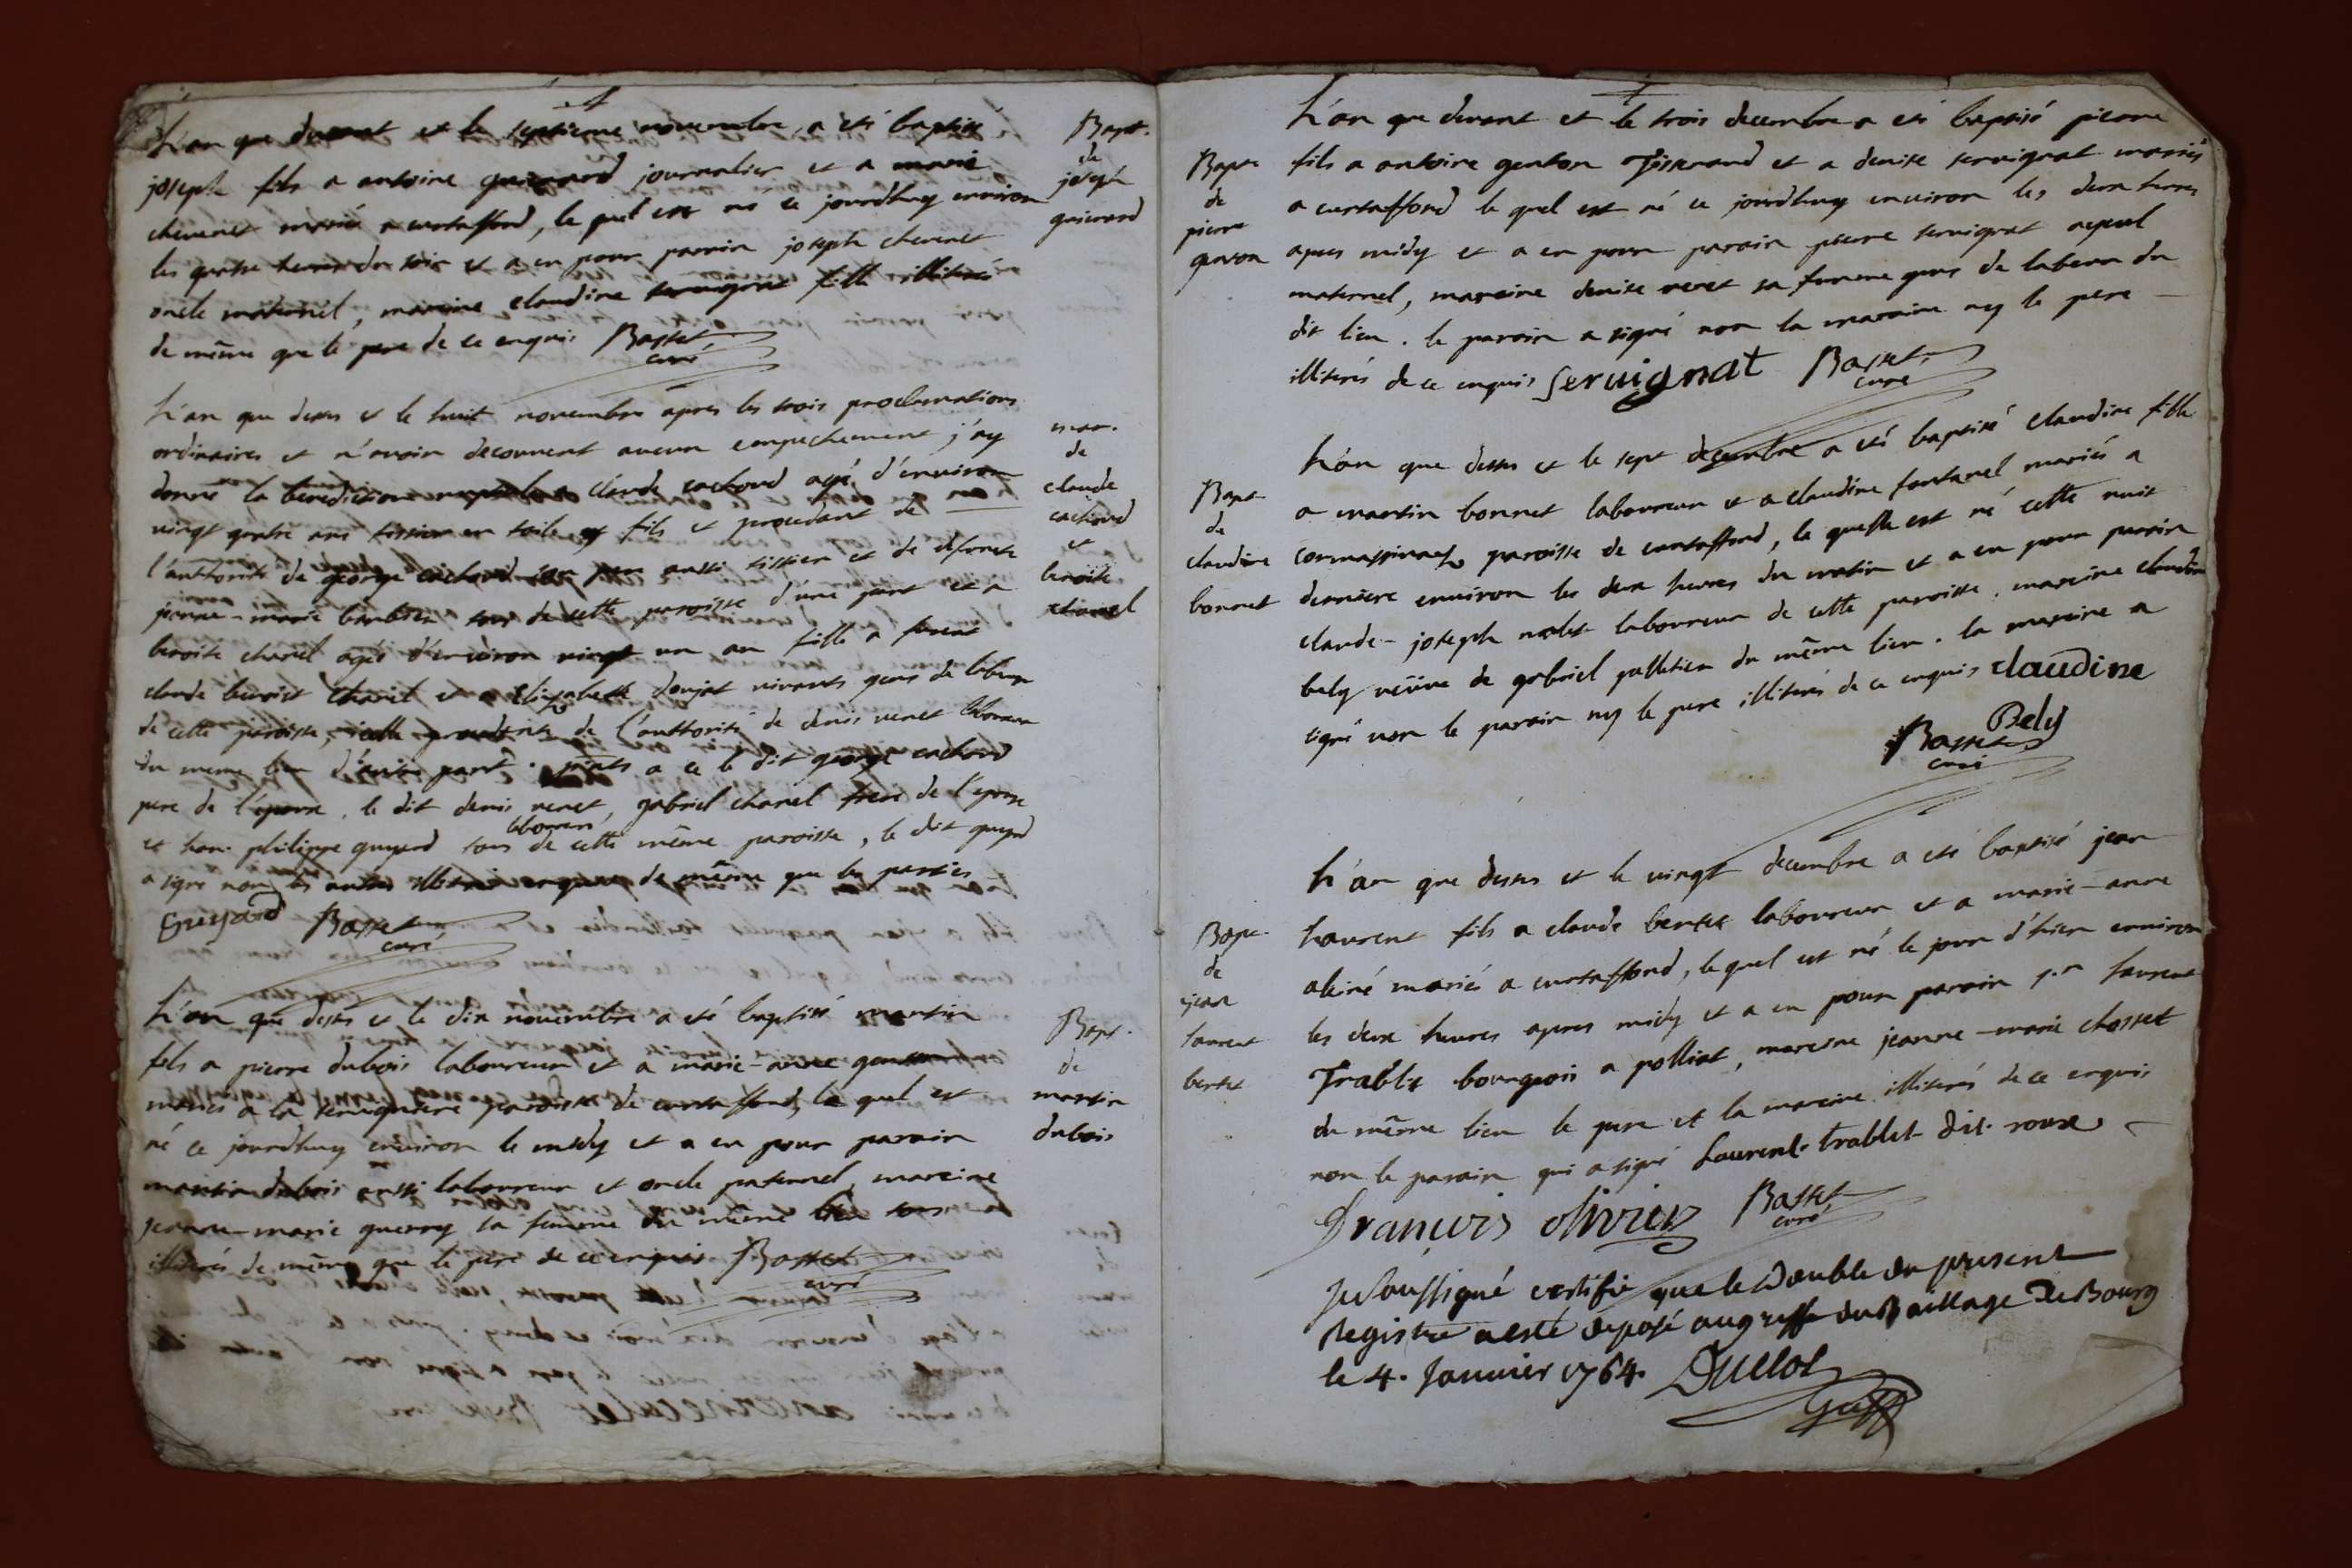 L'an que devant et le septieme novembre a eté baptisé
joseph fils a antoine guierard journalier et a marie
chevenet mariés a curtaffond, le quel est né ce jourdhuy environ
les quatre heures du soir et a eu pour parain joseph chevenet
oncle maternel, maraine claudine servignat fille illiterés
de même que le pere de ce enquis Basset
curé
Bapt.
de
joseph
guierard
L'an que dessus et le huit novembre après les trois proclamations
ordinaires et n'avoir decouvert aucun empechement j'ay
donné la benediction nuptiale a claude cachoud agé d'environ
vingt quatre ans tissier en toile fils et procedant de
l'authorité de george cachoud son pere aussi tissier et de defunte
jeanne-marie barbier tous de cette paroisse d'une part et a
benoite chanel agée d'environ vingt un an fille a furent
claude benoist chanel et a Elizabeth donjat vivants gens de labeur
de cette paroisse, icelle procedante de l'authorité de denis venet laboureur
du meme lieu d'autre part. presents a ce le dit george cachoud
pere de l'epoux, le dit denis venet, gabriel chanel frere de l'epouse
et hon. philippe guyard laboureurs tous de cette même paroisse, le dit guyard
a signé non les autres illiterés enquis de même que les parties
Gueyard Basset
curé
mar.
de
claude
cachoud
et
benoite
chanel
L'an que dessus et le dix novembre a eté baptisé martin
fils a pierre dubois laboureur et a marie-anne
mariés a la servigniere paroisse de curtaffond, le quel est
né ce jourdhuy environ le midy et a eu pour parain
martin dubois aussi laboureur et oncle paternel, maraine
jeanne-marie guerry sa femme du même lieu tous
illiterés de même que le pere de ce enquis Basset
curé
Bapt.
de
martin
dubois
L'an que devant et le trois decembre a eté baptisé pierre
fils a antoine genton Tisserand et a denise servignat mariés
a curtaffond le quel est né ce jourdhuy environ les deux heures
apres midy et a eu pour parain pierre servignat ayeul
maternel, maraine denise venet sa femme gens de labeur du
dit lieu. le parain a signé non la maraine ny le pere
illiterés de ce enquis Servignat Basset
curé
Bapt
de
pierre
genton
L'an que dessus et le sept decembre a eté baptisé claudine fille
a martin bonnet laboureur et a claudine fontanel mariés a
paroisse de curtaffond, la quelle est né cette nuit
derniere environ les deux heures du matin et a eu pour parain
claude-joseph nalet laboureur de cette paroisse, maraine claudine
bely veüve de gabriel palletier du même lieu. la maraine a
signé non le parain ny le pere illiterés de ce enquis claudine
Bely
Basset
curé
Bapt
de
claudine
bonnet
L'an que dessus et le vingt decembre a eté baptisé jean
Laurent fils a claude bertet laboureur et a marie-anne
mariés a curtaffond, lequel est né le jour d'hier environ
les deux heures apres midy et a eu pour parain Sr laurent
Trablet bourgeois a polliat, maraine jeanne-marie chosset
du même lieu le pere et la maraine illiterés de ce enquis
non le parain qui a signé Laurent trablet dit roux
François olivier Basset
curé
Bapt.
de
jean
laurent
bertet
Je soussigné certifie que le Double du present
Registre a esté deposé au greffe du Baillage De Bourg
le 4. Janvier 1764. Duclot
Greff